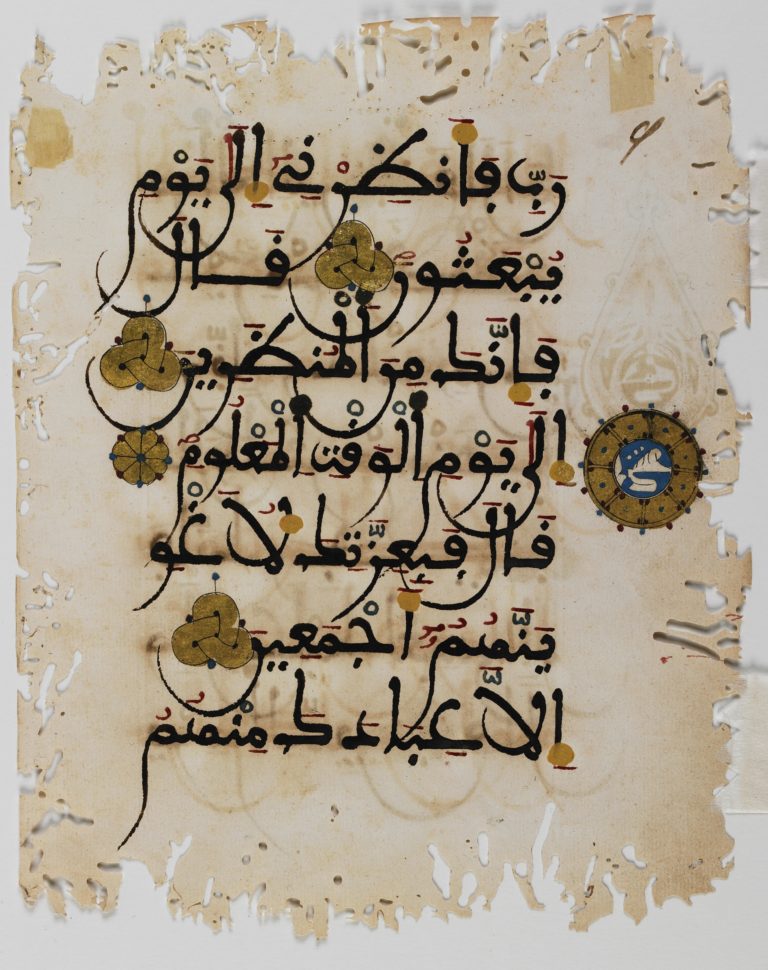 رَبِّ فَأَنظِرْنِي إِلَى يَوْمِ
يُبْعَثُونَ قَالَ
فَإِنَّكَ مِنَ ٱلْمُنظَرِينَ
إِلَى يَوْمِ ٱلْوَقْتِ ٱلْمَعْلُومِ
قَالَ فَبِعِزَّتِكَ لَأُغْوِ
يَنَّهُمُ أَجْمَعِينَ
إِلَّا عِبَادَكَ مِنْهُمُ